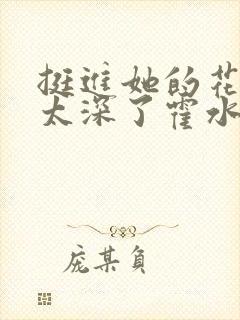 挺进她的花
太深了霍水
庞某负